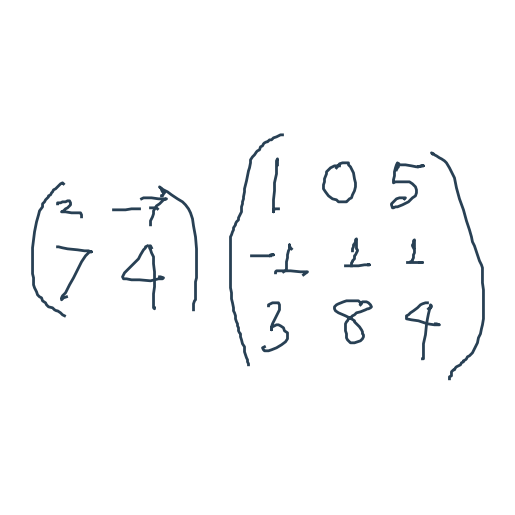 \begin{pmatrix} 2 & -7 \\ 7 & 4 \end{pmatrix} \begin{pmatrix} 1 & 0 & 5 \\ -1 & 1 & 1 \\ 3 & 8 & 4 \end{pmatrix}